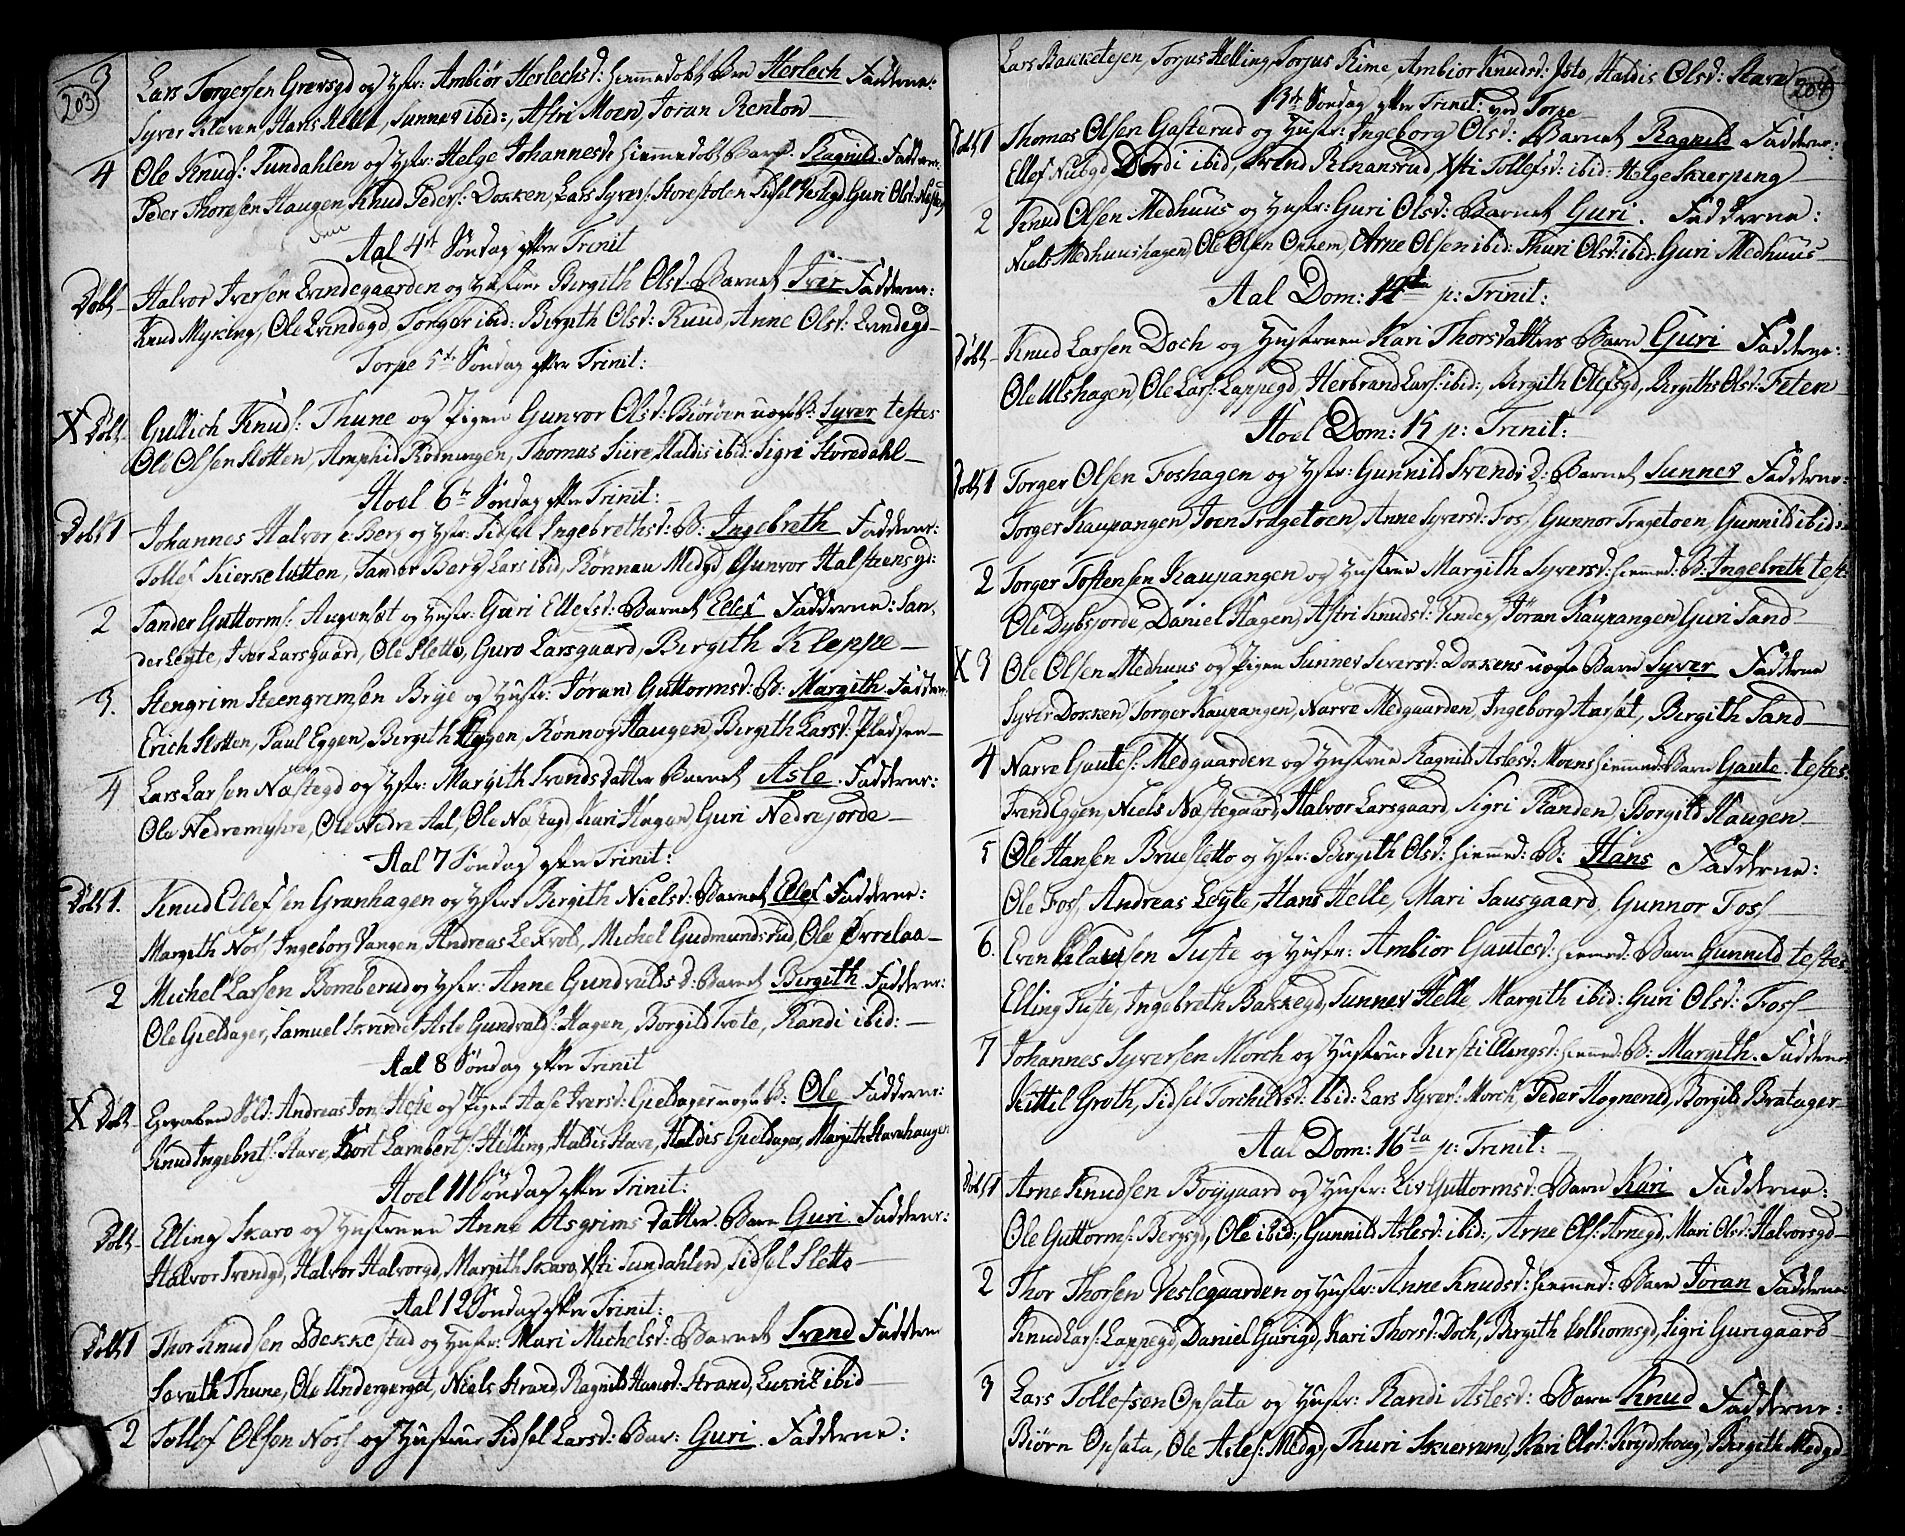 203
3
Lars Torgersen Grevsgd og Hfr: Ambiør Herlechsd: hiemmedøbt Barn Herlech Fadderne:
Syver Kleven Hans Helle, Sunnev ibid:, Astri Moen, Joran Renton
4 Ole Knuds: Sundahlen og Hfr: Helge Johannesd hiemmedøbt Barn: Ragnild. Faddere:
Peder Thoresen Haugen, Knud Peders: Dokken, Lars Syvers: Storestolen Sidsel Guri Olsd:
Aal 4de Søndag efter Trinit
Døbt Halvor Iversen Qvindegaarden og Hustrue Bergith Olsd: Barnet Iver Fadderne:
Knud Myking, Ole Qvindegd, Torger ibid: Bergith Olsd: Ruud, Anne Olsd: Qvindegd
Torpe 5te Søndag efter Trinit:
X Døbt Gullich Knuds: Thune og Pigen Gunvor Olsd: Biøröen uægte B: Syver testes
Ole Olsen Slotten, Amphid Rødningen, Thomas Siire, Haldis ibid: Sigri Storedahl
Hoel 6te Søndag efter Trinit:
Døbt 1 Johannes Halvorse: Berg og Hfr: Sidsel Ingebrethsd: B: Ingebreth Fadderne:
Tollef Kierkeslotten, Sander Berg Lars ibid, Rönnau Medgd Gunvor Halstensgd:
2 Sander Guttorms: Augonset og Hustr: Guri Ellefsd: Barnet Ellef Fadderne: San,
der Leyte, Iver Larsgaard, Ole Sletto, Guro Larsgaard, Bergith Kleppe
3. Stengrim Steengrimsen Brye og Hustr: Jøran Guttormsd: B: Margith Faddere:
Erich Slotten, Paul Eggen, Bergith Hagen, Rønnoy Haugen, Bergith Larsd: Pladsen
4 Lars Larsen Næstegd og Hfr: Margith Svendsdatter Barnet Asle. Fadderne:
Ole Nedremyhre, Ole Nedre Aal, Ole Næstegd Kari Hagen Guri Nedrejorde
Aal 7 Søndag efter Trinit:
Døbt 1. Knud Ellefsen Granhagen og Hustr Bergith Nielsd: Barnet Ellef Fadderne:
Margith Noss, Ingeborg Vangen, Andreas Lexvold, Michel Gudmundsrud, Ole Ørrelaa
2 Michel Larsen Bomberud og Hfr: Anne Gundvaldsd: Barnet Bergith. Fadderne:
Ole Gieldager, Samuel Skrindet Asle Gundvalds: Hagen, Borgild Trote, Randi ibid:
Aal 8 Søndag efter Trinit
X Døbt Gevorben Sold: Andreas Jons: Heje og Pigen Aase Iversd: Gieldager uægte B: Ole Fadderne:
Knud Ingebrets: Stave, Bort Lamberts: Helling, Haldis Stave, Haldis Gieldager, Margith Stavehaugen
Hoel 11 Søndag efter Trinit:
Døbt Elling Skaro og Hustruen Anne Asgrims datter. Barn Guri Fadderne:
Halvor Svendgd, Halvor Halvorgd, Margith Skaro, Xsti Sundahlen, Sidsel Sletto
Aal 12 Søndag efter Trinit:
Døbt 1 Thor Knudsen Bekkestad og Hustr: Mari Michelsd: Barnet Svend Fadderne
Sevath Thune, Ole Underberget, Niels Strand, Ragnild Hansd: Strand, ibid
2 Tollef Olsen Noss og Hustrue Sidsel Larsd: Bar: Guri. Fadderne:
204
Lars Bakketejen, Torjus Helling, Torjus Rime, Ambior Knudsd: Jsto, Haldis Olsd: Stave
13de Søndag efter Trinit: ved Torpe
Døbt 1 Thomas Olsen Gasterud og Hustr: Ingeborg Olsd: Barnet Ragnild Fadderne:
Ellef Nubgd Dordi ibid, Svend Renansrud, Xsti Tollefsd: ibid: Helge Skurpeng
2 Knud Olsen Medhuus og Hustr: Guri Olsd: Barnet Guri. Fadderne:
Niels Medhuushagen, Ole Olsen Onnem, Arne Olsen ibid: Thuri Olsd: ibid: Guri Medhuus
Aal Dom: 14ta p: Trinit:
Døbt Knud Larsen Doch og Hustruen Kari Thorsdatters Barn Guri Fadderne:
Ole Ulshagen, Ole Lars: Lappegd, Herbrand Lars: ibid:, Bergith Olefsgd, Bergith Olsd: Feten
Hoel Dom: 15 p: Trinit:
Døbt 1 Torger Olsen Foshagen og Hfr: Gunnild Svendsd: Barnet Sunnev Fadderne:
Torger Kaupangen Joen Tragetoen, Anne Syversd: Foss, Gunnor Tragetoen, Gunnild ibid:
2 Torger Tostensen Kaupangen og Hustrue Margith Syversd: hiemmed: B: Ingebreth test:
Ole Dybsjorde, Daniel Hagen, Astri Knudsd: Jøran Kaupangen Guri Sand
X 3 Ole Olsen Medhuus og Pigen Sunnev Siversd: Dokkens uægte Barn Syver Fadderne
Syver Dokken Torger Kaupangen, Narve Medgaarden, Ingeborg Ansat, Bergith Sand
4 Narve Gautes: Medgaarden og Hustrue Ragnild Aslesd: Moens hiemmed: Barn Gaute. testes:
Svend Eggen, Niels Næstegaard, Halvor Larsgaard Sigri Randen, Borgild Haugen
5 Ole Hansen Bruesletto og Hfr: Bergith Olsd: hiemmed: B: Hans Fadderne:
Ole Foss, Andreas Leyte, Hans Helle, Mari Sausgaard, Gunnor Foss
6. Even Clausen Tufte og Hustr: Ambior Gautesd: hiemmed: Barn Gunnild testes:
Elling Tufte, Ingebreth Bakkegd, Sunnev Helle, Margith ibid: Guri Olsd: Foss
7 Johannes Syversen Morch og Hustrue Kirsti Ellingsd: hiemmed: B: Margith. Fadderne
Kittil Groth, Sidsel Torchildsd: ibid: Lars Syvers: Morch, Peder Hognerud, Borgild Bratager
Aal Dom: 16ta p: Trinit:
Døbt 1 Arne Knudsen Boygaard og Hustr: Liv Guttormsd: Barn Kari Fadderne:
Ole Guttorms: Bergsgd, Ole ibid:, Gunnild Aslesd: ibid:, Arne Ols: Arnegd, Mari Olsd: Halvorsgd
2 Thor Thorsen Veslegaarden og Hustr: Anne Knudsd: hiemmed: Barn Jøran Fadderne:
Knud Lars: Lappegd, Daniel Gurigd, Kari Thorsd: Doch, Bergith Votbiornsgd, Sigri Gurigaard
3 Lars Tollefsen Opsata og Hustr: Randi Aslesd: Barn Knud Fadderne:
Biørn Opsata, Ole Asles: Medgd, Thuri Skierrum, Kari Olsd: Bergith Medgd